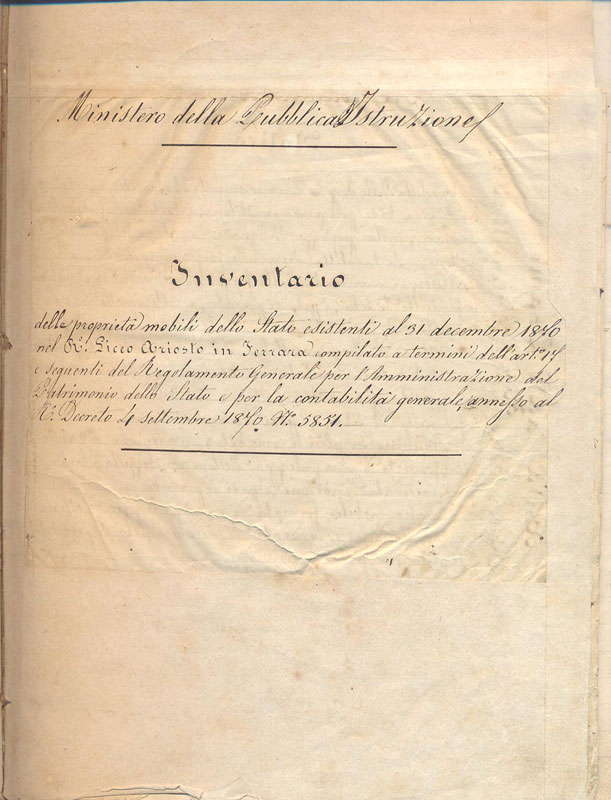 Ministero della Pubblica Istruzione
Inventario
delle proprietà mobili dello Stato esistenti al 31 decembre 1870
nel R.º Liceo Ariosto in Ferrara compilato a termini dell'art.º 17
e seguenti del Regolamento Generale per l'Amministrazione del
Patrimonio dello Stato e per la contabilità generale, annesso al
R.º Decreto 4 Settembre 1870 N.º 5851.